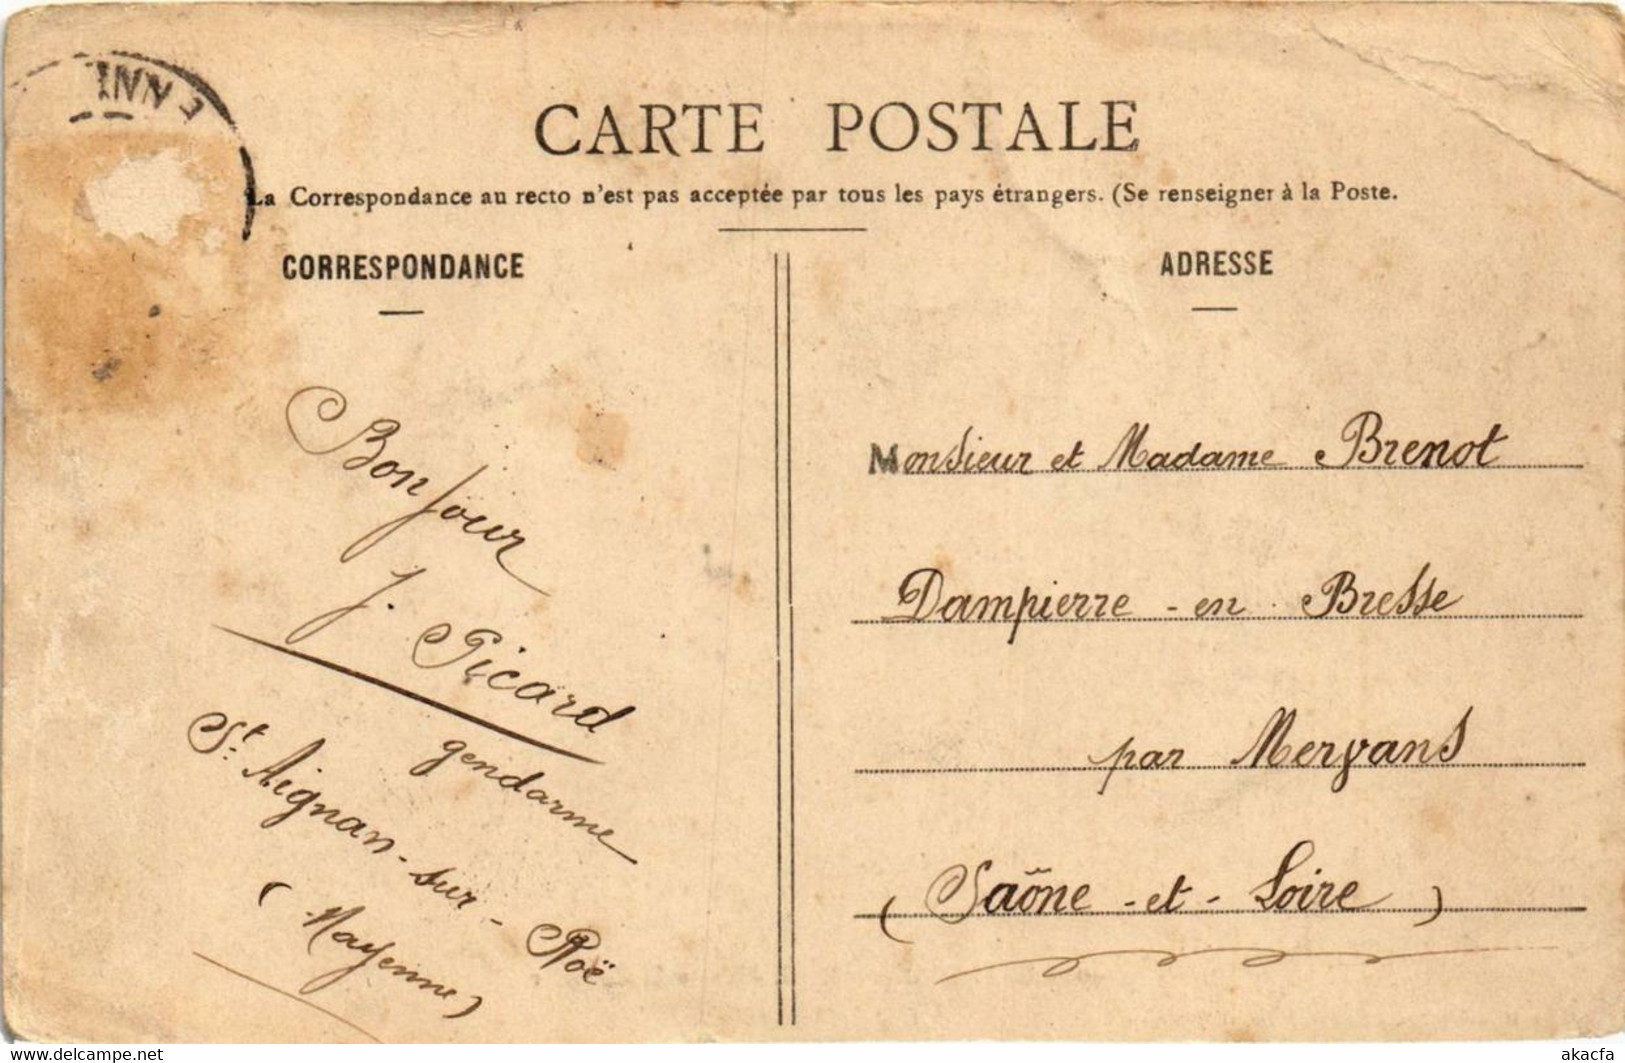 CARTE POSTALE
La Correspondance au recto n'est pas acceptée par tous les pays étrangers. (Se renseigner à la Poste.
CORRESPONDANCE
Bonjour
J. Picard
gendarme
St. Aignan-sur-Roë
(Mayenne)
ADRESSE
Monsieur et Madame Brenot
Dampierre-en-Bresse
par Mervans
(Saône-et-Loire)
www.delcampe.net
akacfa